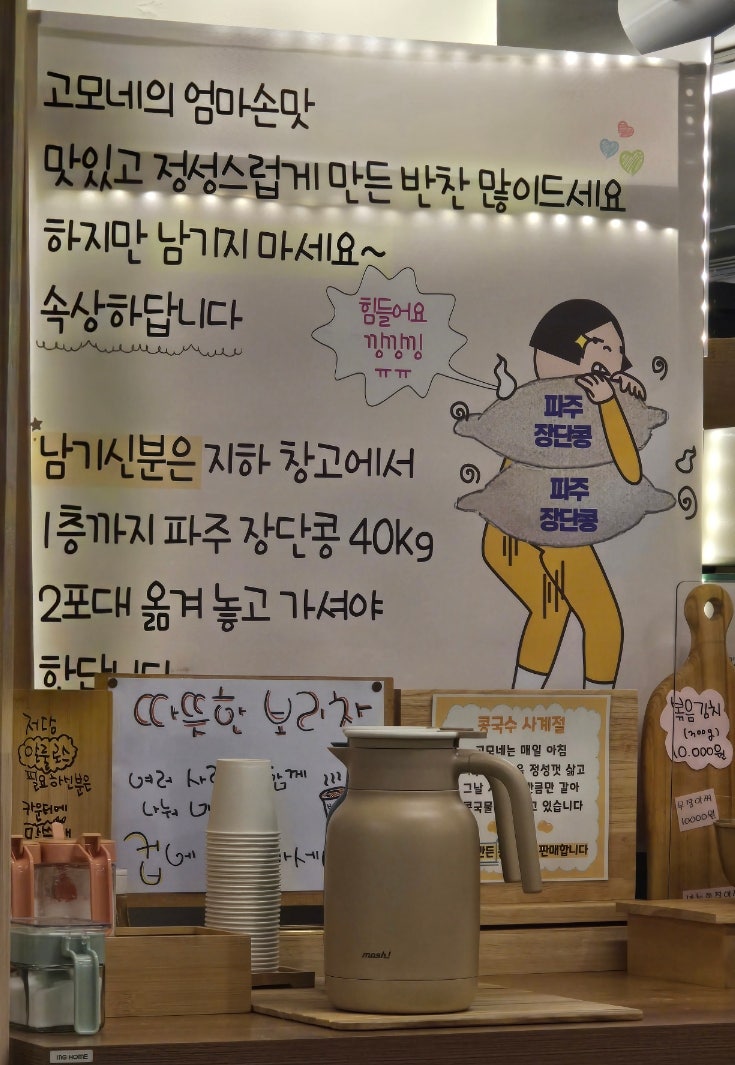 고모네의 엄마손맛
맛있고 정성스럽게 만든 반찬 많이드세요
하지만 남기지 마세요~
속상하답니다
힘들어요
낑낑낑
ㅠㅠ
파주
장단콩
파주
장단콩
남기신분은 지하 창고에서
1층까지 파주 장단콩 40kg
2포대 옮겨 놓고 가셔야
한답니다
저당
알룰로스
필요하신분은
카운터에
따뜻한 보리차
여러
함께
컵에
콩국수 사계절
고모네는 매일 아침
정성껏 삶고
그날
만큼만 갈아
콩국물
있습니다
판매합니다
볶음김치
(300g)
10.000원
10000원
mosh!
ING HOME